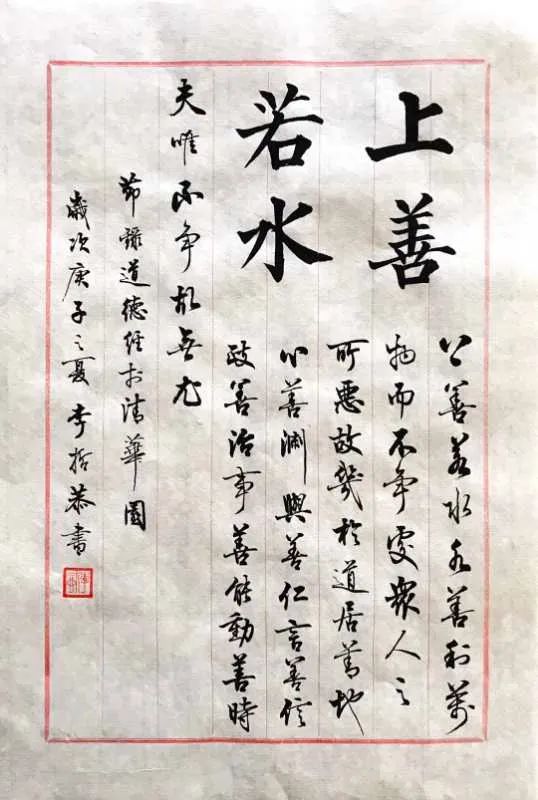 上善
若水
上善若水水善利萬
物而不争處衆人之
所惡故幾於道居善地
心善淵與善仁言善信
政善治事善能動善時
夫唯不争故無尤
節録道德经於清華園
歲次庚子之夏李哲恭書